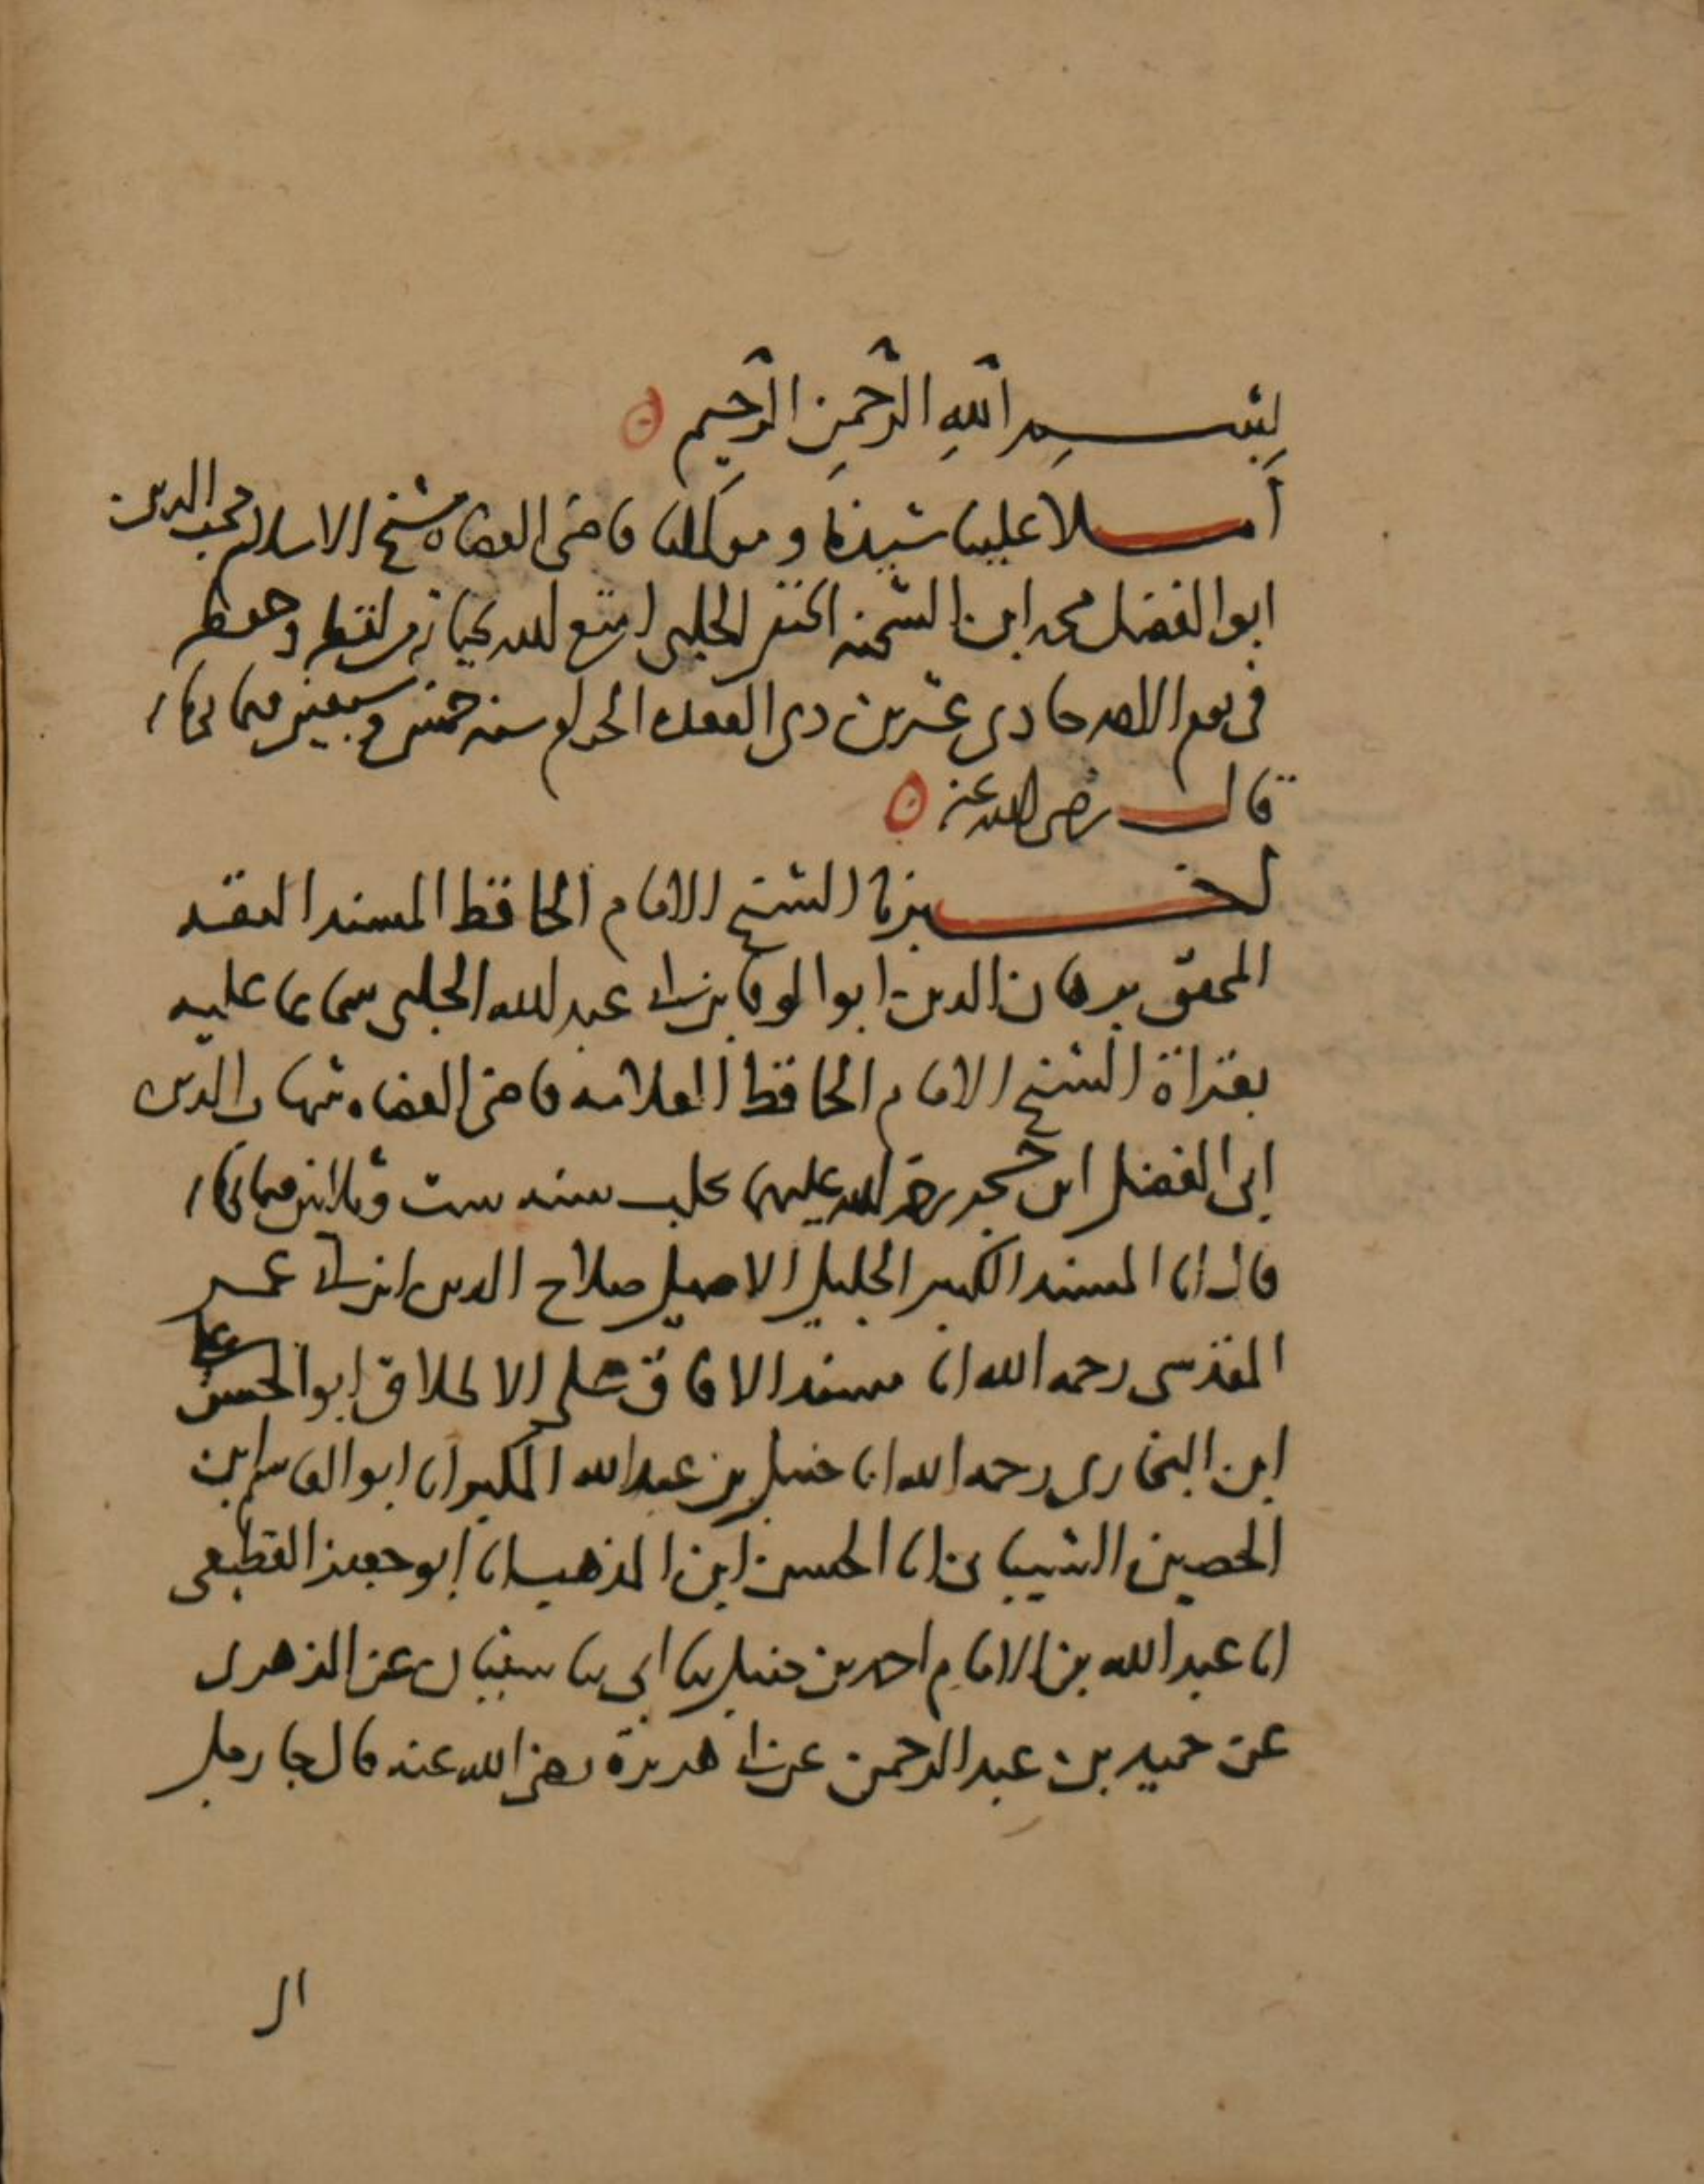 بسم الله الرحمن الرحيم
أملا علينا سيدنا ومولانا قاضى القضاه شيخ الاسلام محب الدين
ابو الفضل محمد ابن الشحنه الحنفى الحلبى امتع الله بحياته من لفظه وحفظه
فى يوم الاحد حادى عشرين ذى القعده الحرام سنه خمس وسبعين وثمانمائه
قال رضى الله عنه
اخبرنا الشيخ الامام الحافظ المسند المفيد
المحقق برهان الدين ابو الوفا بن ابى عبد الله الحلبى سماعا عليه
بقراة الشيخ الامام الحافظ العلامه قاضى القضاه شهاب الدين
ابى الفضل ابن حجر رحمة الله عليهما بحلب سنه ست وثلاثين وثمانمائه
قال انا المسند الكبير الجليل الاصيل صلاح الدين ابن ابى عمر
المقدسى رحمه الله انا مسند الافاق على الاطلاق ابو الحسن على
ابن البخارى رحمه الله انا حنبل بن عبد الله المكبر انا ابو القاسم ابن
الحصين الشيبانى انا الحسن ابن المذهب انا ابو جعفر القطيعى
انا عبد الله بن الامام احمد بن حنبل ثنا ابى ثنا سفيان عن الزهرى
عن حميد بن عبد الرحمن عن ابى هريرة رضى الله عنه قال جا رجل
الى